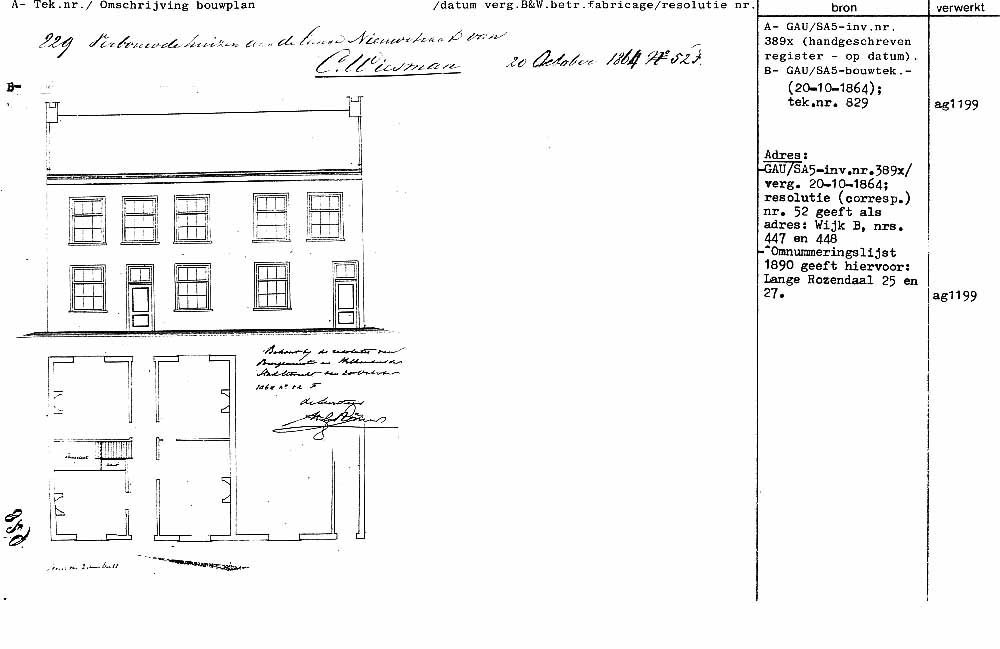 A- Tek.nr./ Omschrijving bouwplan /datum verg.B&W.betr.fabricage/resolutie nr. bron verwerkt
229 Verbouw de huizen aan de Nieuwstraat van
C. Wiesman 20 October 1864 No 52 F.
B-
A- GAU/SA5-inv.nr.
389x (handgeschreven
register - op datum).
B- GAU/SA5-bouwtek.-
(20-10-1864);
tek.nr. 829 ag1199
Adres:
-GAU/SA5-inv.nr.389x/
verg. 20-10-1864;
resolutie (corresp.)
nr. 52 geeft als
adres: Wijk B, nrs.
447 en 448
-Omnummeringslijst
1890 geeft hiervoor:
Lange Rozendaal 25 en
27. ag1199
Behoort bij de resolutie van
Burgemeester en Wethouders
1864 no 52 F
829